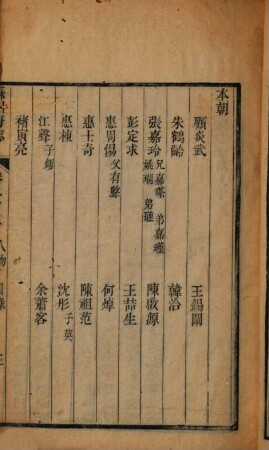 本朝
顧炎武
王錫闡
朱鶴齡
韓洽
張嘉玲 兄嘉瑾 弟嘉瑾
姚瑚 弟璉
陳啟源
彭定求
王喆生
惠周惕 父有聲
何焯
惠士奇
陳祖范
惠棟
沈彤 子英
江聲 子鏐
余蕭客
褚寅亮